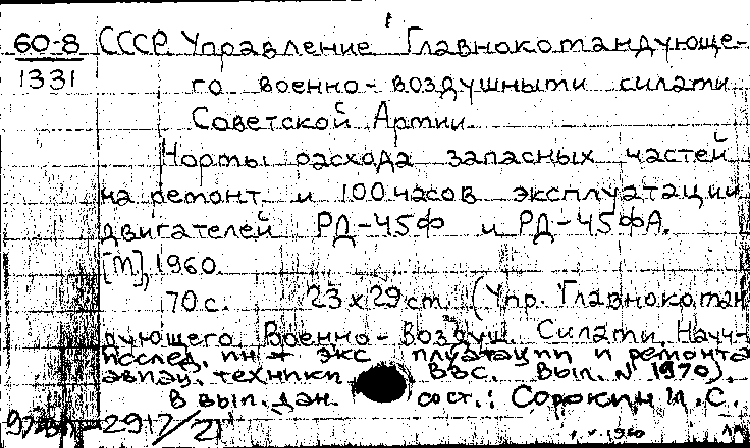 60-8 СССР. Управление Главнокомандующе-
1331 го военно-воздушными силами
Советской Армии.
Нормы расхода запасных частей
на ремонт и 100 часов эксплуатации
двигателей РД-45Ф и РД-45ФА.
[М], 1960.
70 с. 23 х 29 см. (Упр. Главнокоман
дующего Военно-Воздуш. Силами. Науч-
послед. ин-т экс плуатации и ремонта
авиац. техники ВВС. Вып. № 1970).
В вып. дан. сост.: Сорокин И. С.
2917/21